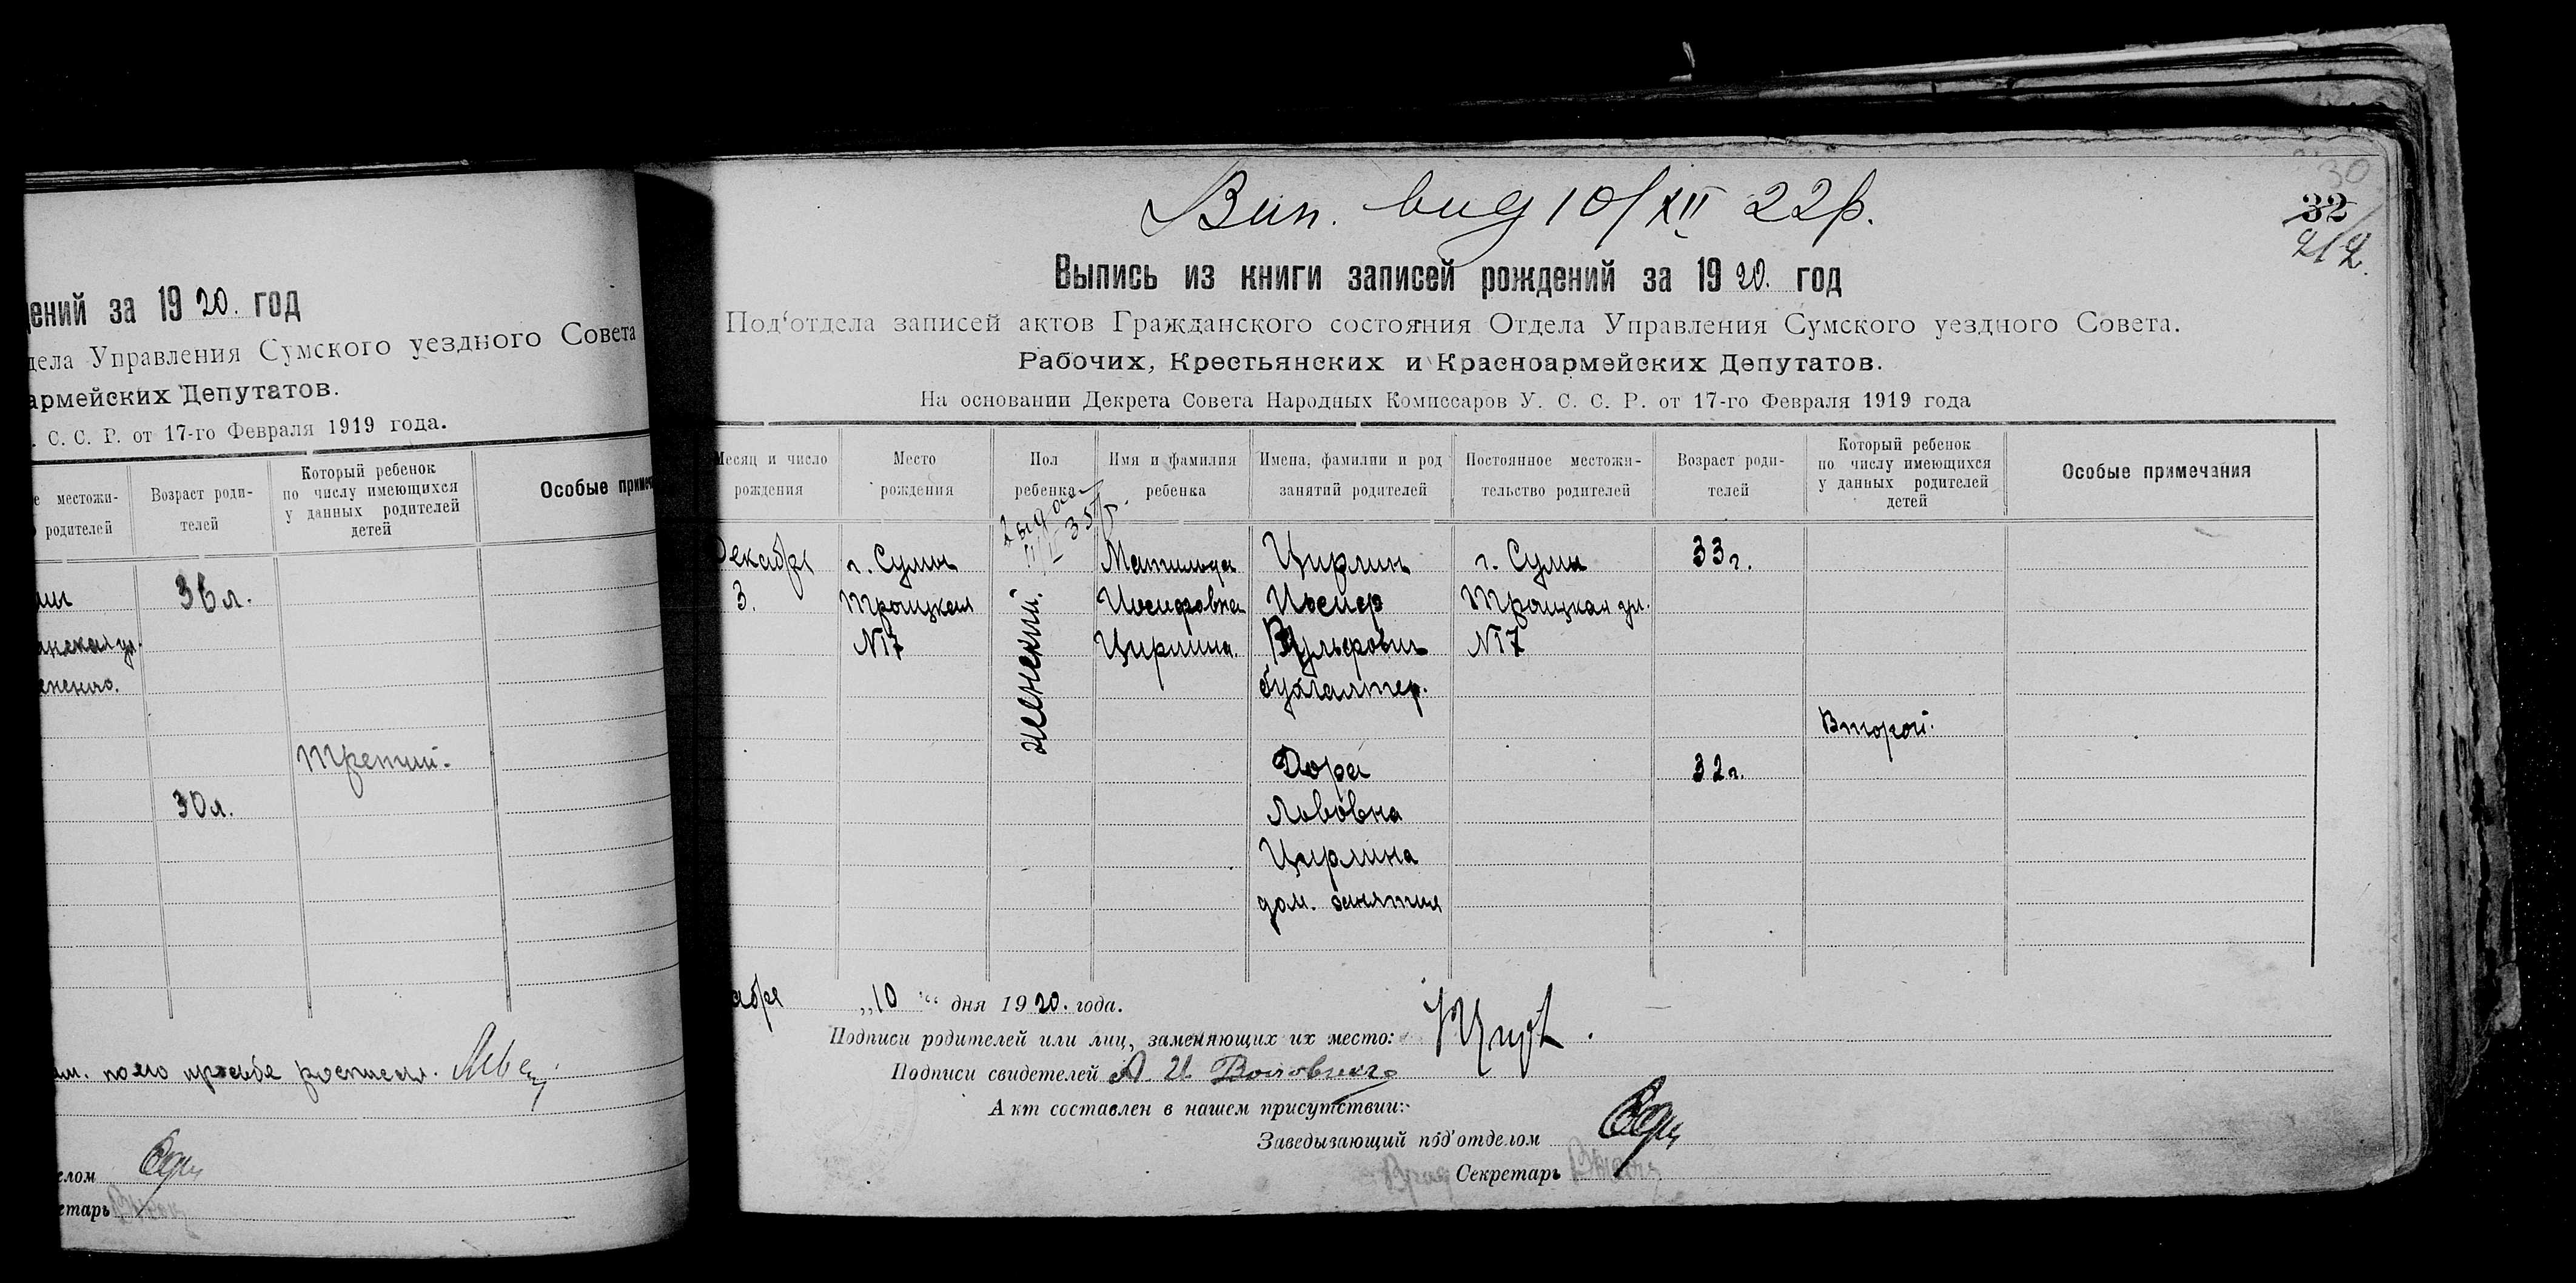 30
32
212.
Вип. вид 10/XII 22 р.
дений за 1920. год
дела Управления Сумского уездного Совета
армейских Депутатов.
. С. С. Р. от 17-го Февраля 1919 года.
е местожи-
родителей
Возраст роди-
телей
Который ребенок
по числу имеющихся
у данных родителей
детей
Особые примеч
36 л.
Третий.
30 л.
по его просьбе
елом
етарь
Выпись из книги записей рождений за 1920. год
Под‘отдела записей актов Гражданского состояния Отдела Управления Сумского уездного Совета.
Рабочих, Крестьянских и Красноармейских Депутатов.
На основании Декрета Совета Народных Комиссаров У. С. С. Р. от 17-го Февраля 1919 года
Месяц и число
рождения
Место
рождения
Пол
ребенка
Имя и фамилия
ребенка
Имена, фамилии и род
занятий родителей
Постоянное местожи-
тельство родителей
Возраст роди-
телей
Который ребенок
по числу имеющихся
у данных родителей
детей
Особые примечания
Декабря
3.
г. Сумы
Троицкая
№17
женский.
Матильда
Иосифовна
Цирлина.
Цирлин
Иосиф
Вульфович
бухгалтер.
Дора
Львовна
Цирлина
дом. занятия
г. Сумы
Троицкая ул.
№17
33 г.
32 г.
Второй.
абря „10“ дня 1920. года.
Подписи родителей или лиц, заменяющих их место:
Подписи свидетелей А. И.
Акт составлен в нашем присутствии:
Заведывающий под‘отделом
Секретарь